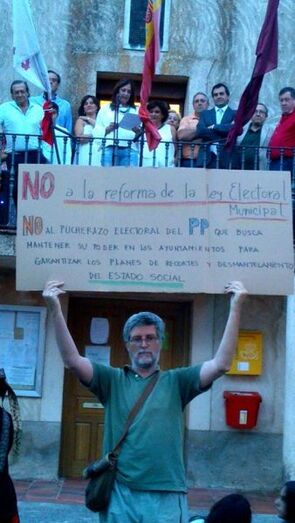 NO a la reforma de la ley Electoral
Municipal
NO AL PUCHERAZO ELECTORAL DEL PP QUE BUSCA
MANTENER SU PODER EN LOS AYUNTAMIENTOS PARA
GARANTIZAR LOS PLANES DE RECORTES Y DESMANTELAMIENTO
DEL ESTADO SOCIAL